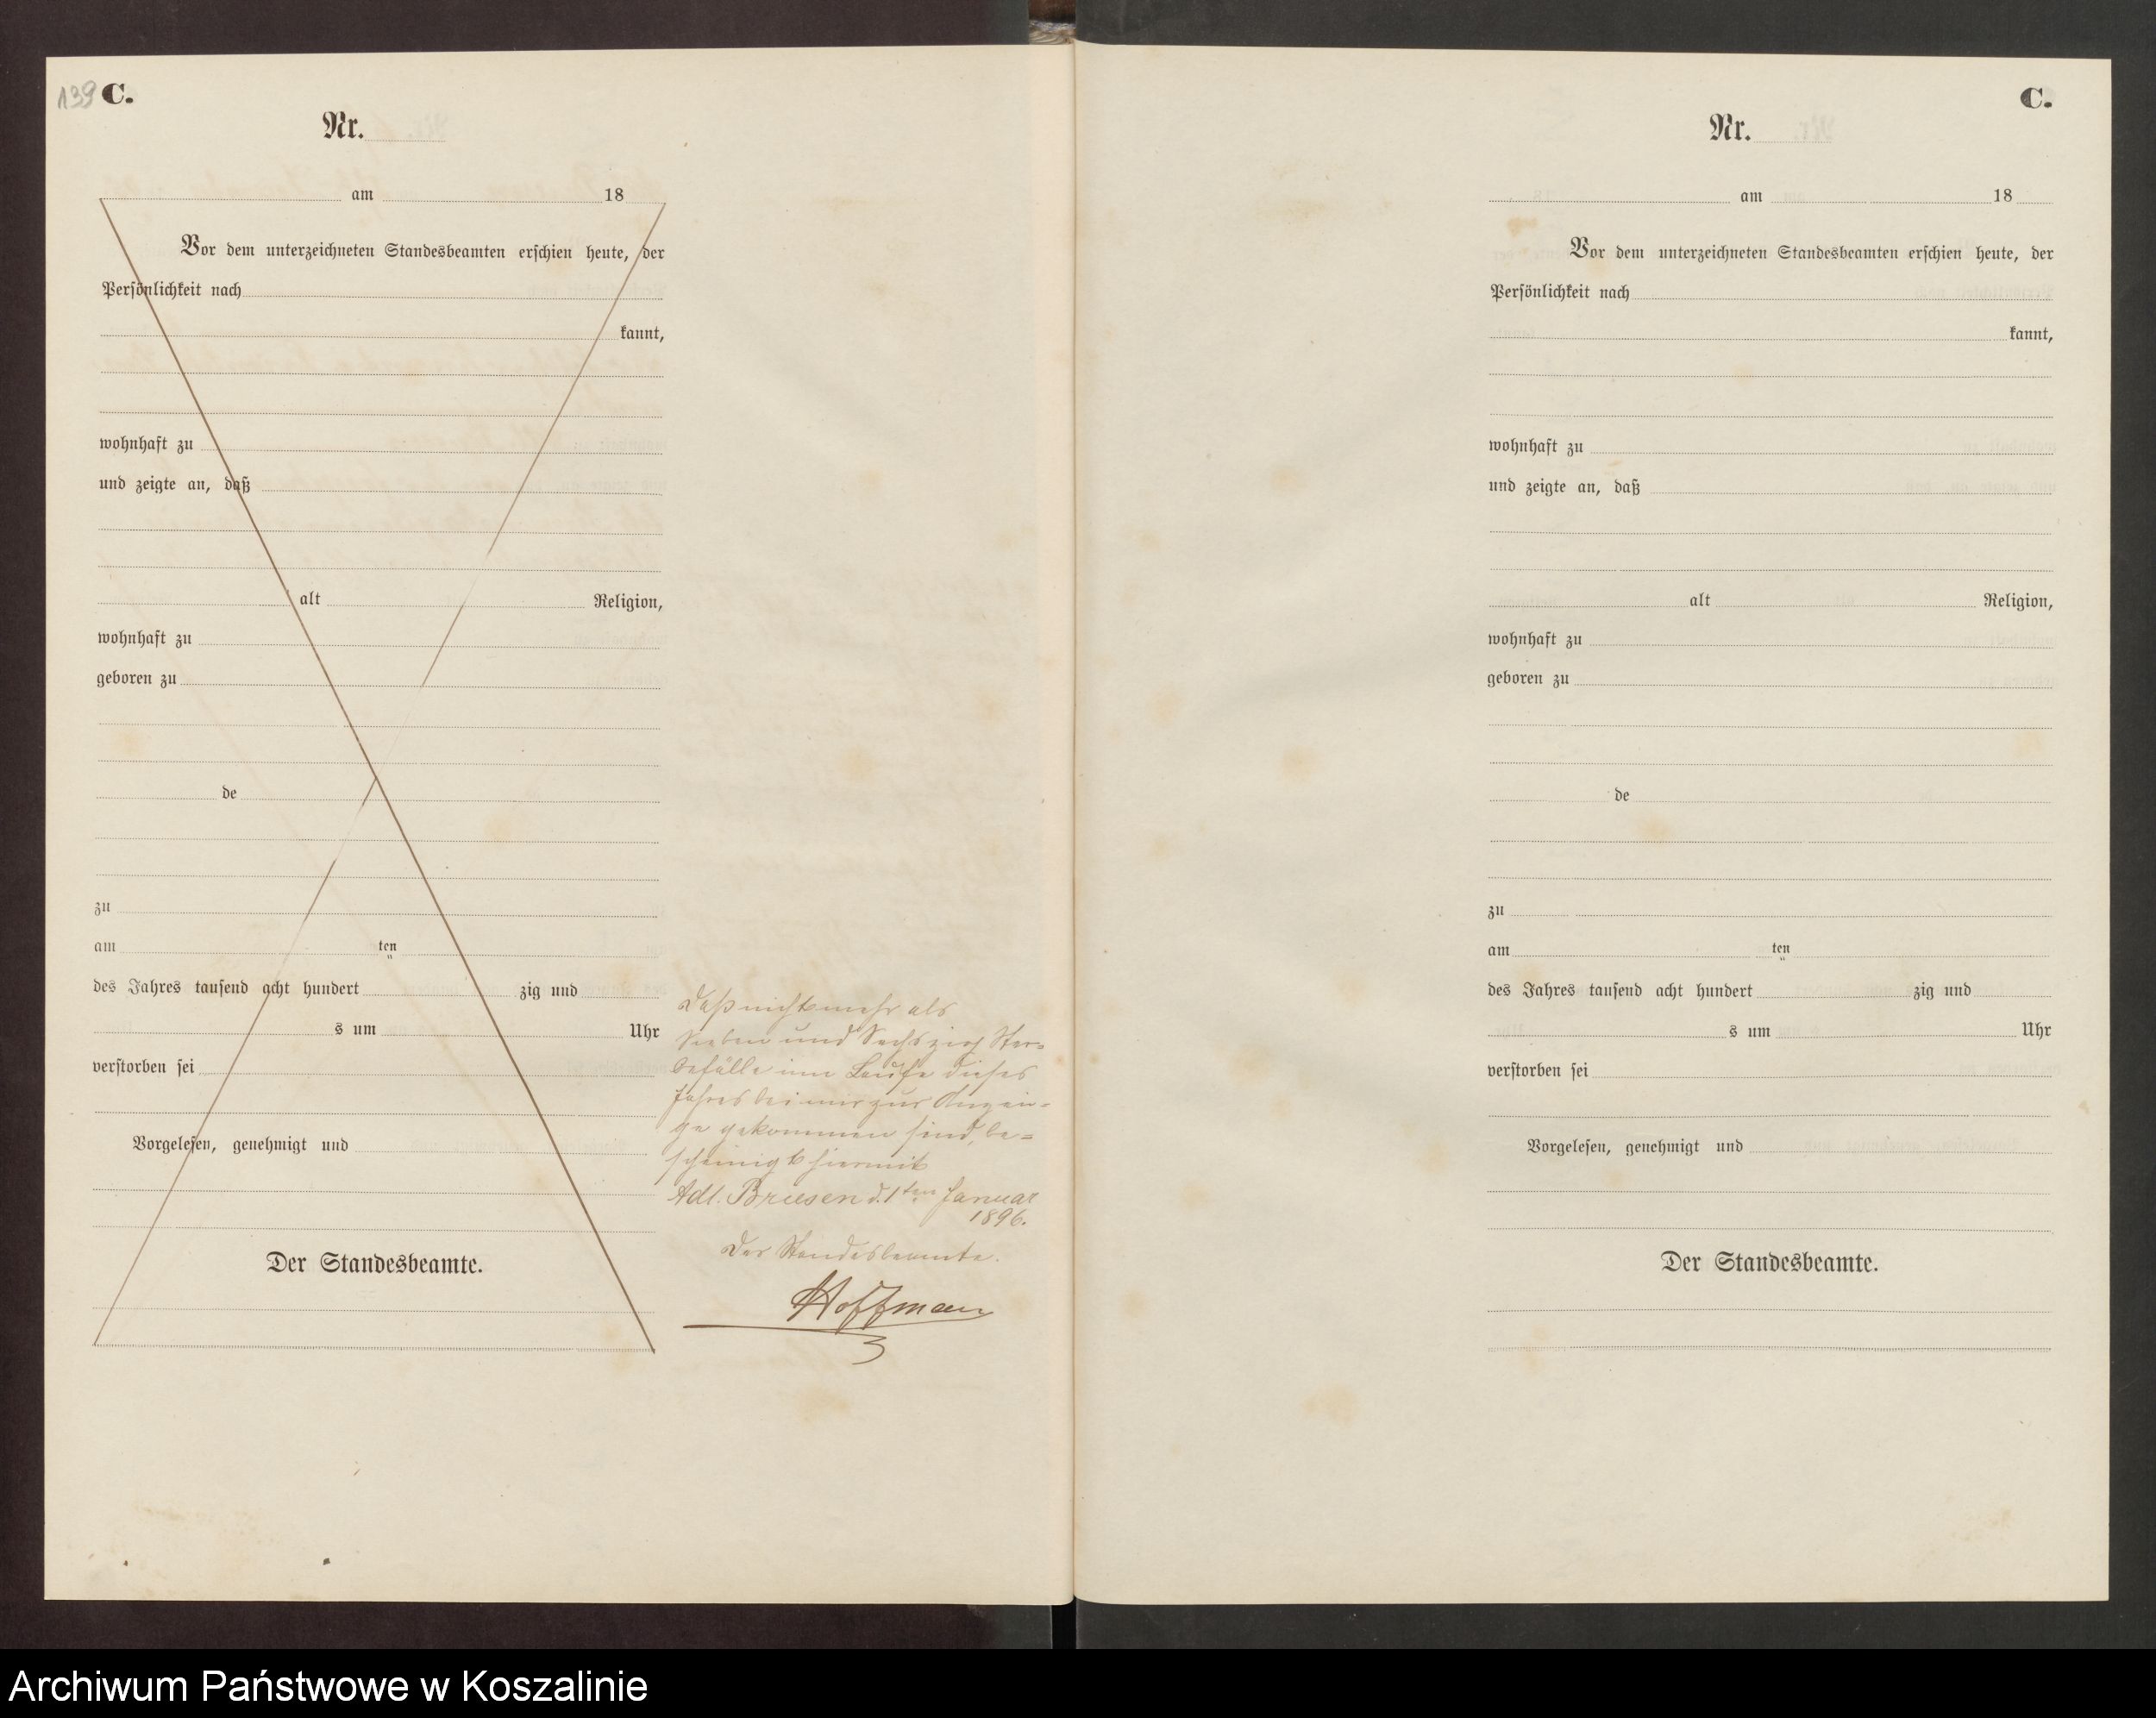 139 C.
Nr.
am 18
Vor dem unterzeichneten Standesbeamten erschien heute, der
Persönlichkeit nach
kannt,
wohnhaft zu
und zeigte an, daß
alt Religion,
wohnhaft zu
geboren zu
de
zu
am ten
des Jahres tausend acht hundert zig und
s um Uhr
verstorben sei
Vorgelesen, genehmigt und
Der Standesbeamte.
Daß nicht mehr als
Sieben und Sechszig Ster-
befälle im Laufe dieses
Jahres bei mir zur Anzei-
ge gekommen sind, be-
scheinigt hiermit
Adl. Briesen d. 1ten Januar
1896.
Der Standesbeamte.
Hoffman
C.
Nr.
am 18
Vor dem unterzeichneten Standesbeamten erschien heute, der
Persönlichkeit nach
kannt,
wohnhaft zu
und zeigte an, daß
alt Religion,
wohnhaft zu
geboren zu
de
zu
am ten
des Jahres tausend acht hundert zig und
s um Uhr
verstorben sei
Vorgelesen, genehmigt und
Der Standesbeamte.
Archiwum Państwowe w Koszalinie